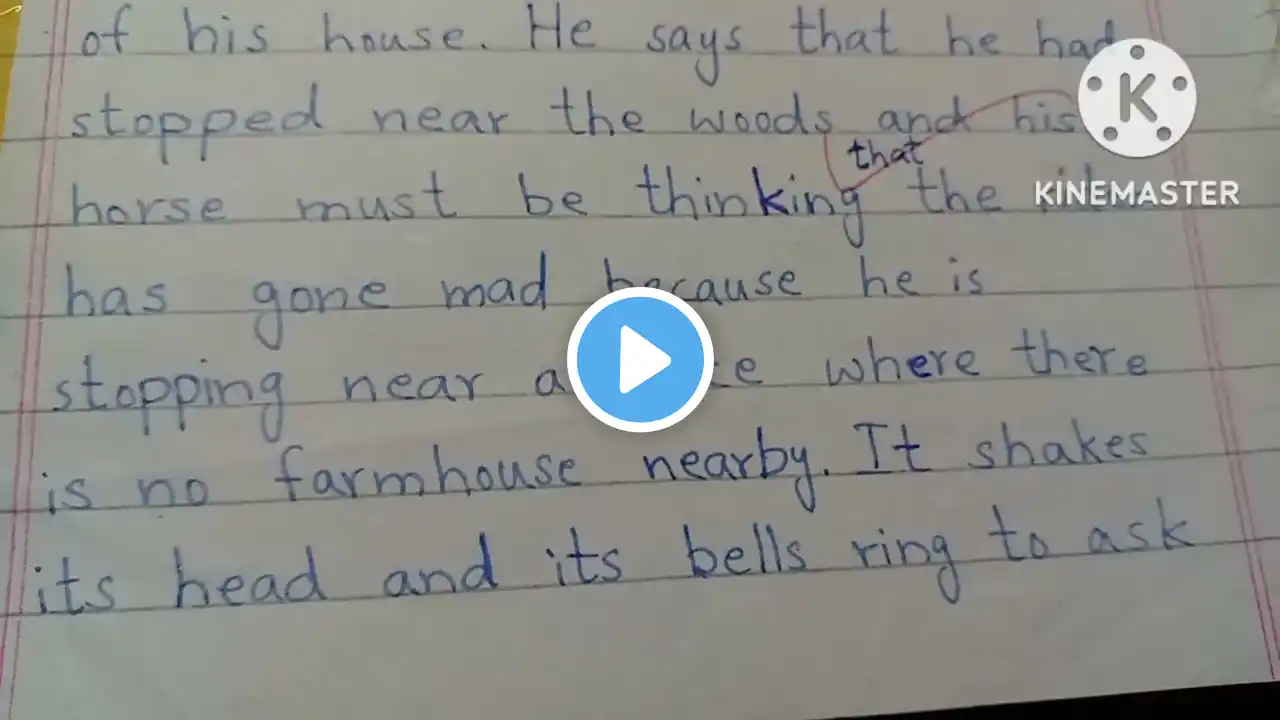 of his house. He says that he had
stopped near the woods and his
that
horse must be thinking the
has gone mad because he is
stopping near a where there
is no farmhouse nearby. It shakes
its head and its bells ring to ask
K
KINEMASTER